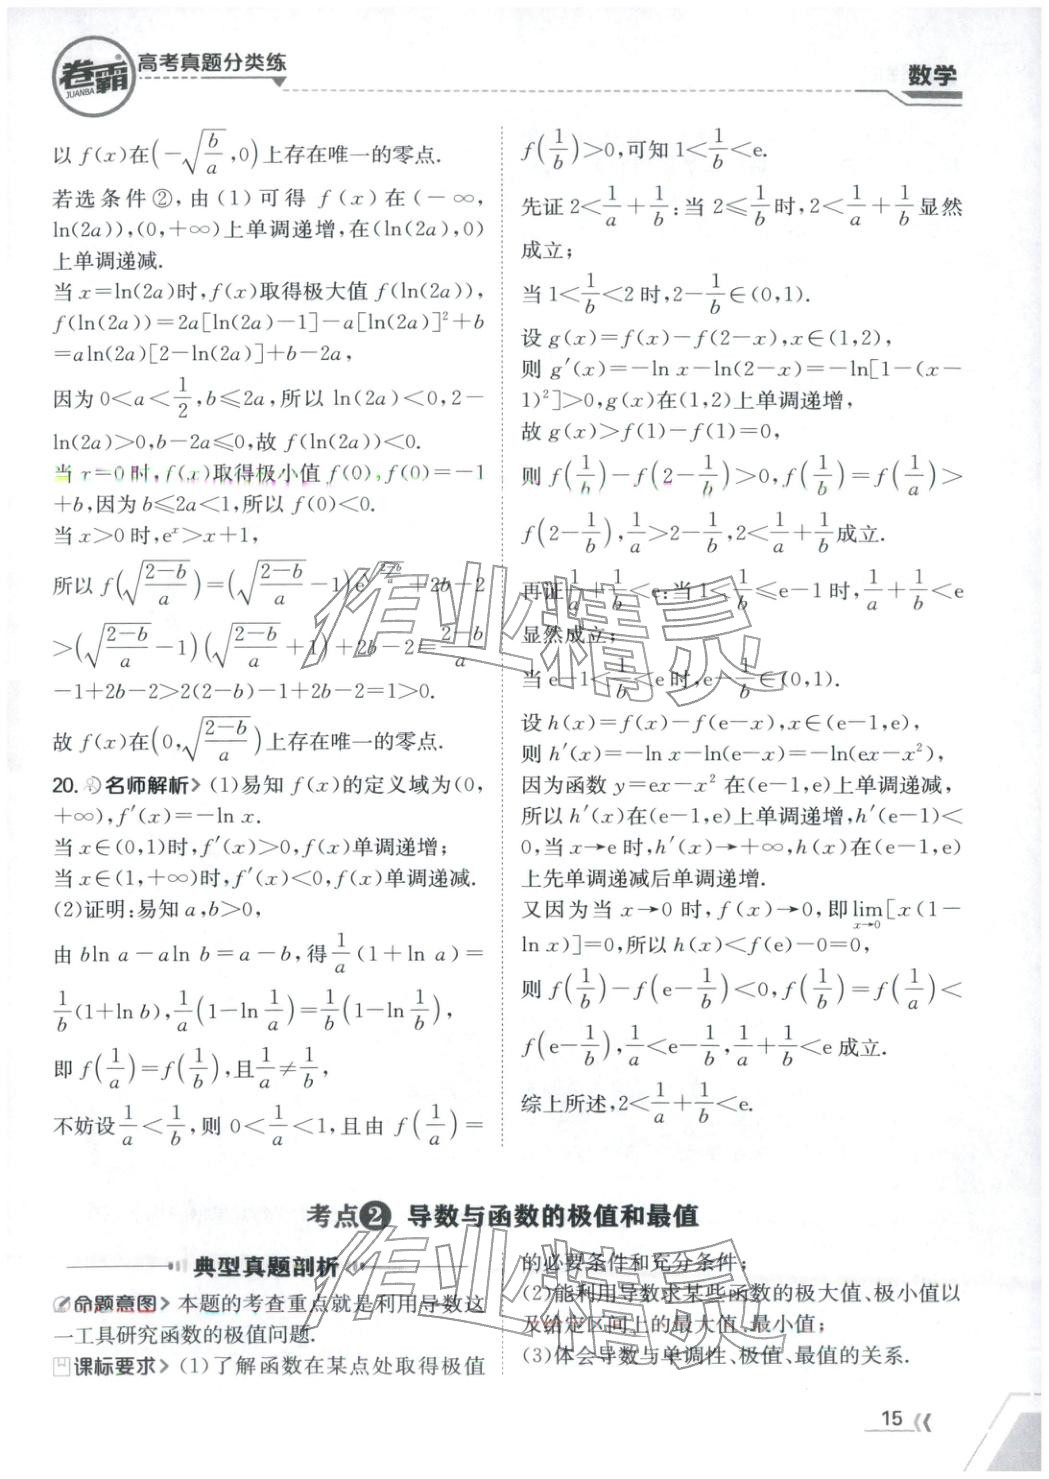 卷霸
JUANBA
高考真题分类练
数学
以 f(x)在(-√(b/a),0)上存在唯一的零点.
若选条件②,由(1)可得 f(x)在(-∞,
ln(2a)),(0,+∞)上单调递增,在(ln(2a),0)
上单调递减.
当 x=ln(2a)时,f(x)取得极大值 f(ln(2a)),
f(ln(2a))=2a[ln(2a)-1]-a[ln(2a)]²+b
=aln(2a)[2-ln(2a)]+b-2a,
因为 0<a<1/2,b≤2a,所以 ln(2a)<0,2-
ln(2a)>0,b-2a≤0,故 f(ln(2a))<0.
当 x=0 时,f(x)取得极小值 f(0),f(0)=-1
+b,因为 b≤2a<1,所以 f(0)<0.
当 x>0 时,eˣ>x+1,
所以 f(√((2-b)/a))=(√((2-b)/a)-1)e^√((2-b)/a)+2b-2
>(√((2-b)/a)-1)(√((2-b)/a)+1)+2b-2=(2-b)/a
-1+2b-2>2(2-b)-1+2b-2=1>0.
故 f(x)在(0,√((2-b)/a))上存在唯一的零点.
20. 名师解析> (1)易知 f(x)的定义域为(0,
+∞),f′(x)=-ln x.
当 x∈(0,1)时,f′(x)>0,f(x)单调递增;
当 x∈(1,+∞)时,f′(x)<0,f(x)单调递减.
(2)证明:易知 a,b>0,
由 bln a-aln b=a-b,得1/a(1+ln a)=
1/b(1+ln b),1/a(1-ln 1/a)=1/b(1-ln 1/b),
即 f(1/a)=f(1/b),且1/a≠1/b,
不妨设1/a<1/b,则 0<1/a<1,且由 f(1/a)=
f(1/b)>0,可知 1<1/b<e.
先证 2<1/a+1/b:当 2≤1/b时,2<1/a+1/b显然
成立;
当 1<1/b<2 时,2-1/b∈(0,1).
设 g(x)=f(x)-f(2-x),x∈(1,2),
则 g′(x)=-ln x-ln(2-x)=-ln[1-(x-
1)²]>0,g(x)在(1,2)上单调递增,
故 g(x)>f(1)-f(1)=0,
则 f(1/b)-f(2-1/b)>0,f(1/b)=f(1/a)>
f(2-1/b),1/a>2-1/b,2<1/a+1/b成立.
再证1/a+1/b<e:当 1<1/b≤e-1 时,1/a+1/b<e
显然成立;
当 e-1<1/b<e 时,e-1/b∈(0,1).
设 h(x)=f(x)-f(e-x),x∈(e-1,e),
则 h′(x)=-ln x-ln(e-x)=-ln(ex-x²),
因为函数 y=ex-x² 在(e-1,e)上单调递减,
所以 h′(x)在(e-1,e)上单调递增,h′(e-1)<
0,当 x→e 时,h′(x)→+∞,h(x)在(e-1,e)
上先单调递减后单调递增.
又因为当 x→0 时,f(x)→0,即lim[x(1-
x→0
ln x)]=0,所以 h(x)<f(e)-0=0,
则 f(1/b)-f(e-1/b)<0,f(1/b)=f(1/a)<
f(e-1/b),1/a<e-1/b,1/a+1/b<e 成立.
综上所述,2<1/a+1/b<e.
考点2 导数与函数的极值和最值
典型真题剖析
命题意图> 本题的考查重点就是利用导数这
一工具研究函数的极值问题.
课标要求> (1)了解函数在某点处取得极值
的必要条件和充分条件;
(2)能利用导数求某些函数的极大值、极小值以
及给定区间上的最大值、最小值;
(3)体会导数与单调性、极值、最值的关系.
作业精灵
作业精灵
15